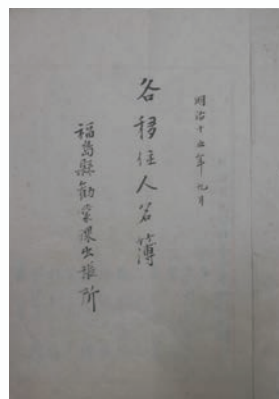 明治十五年九月
各移住人名簿
福島縣勧業課出張所